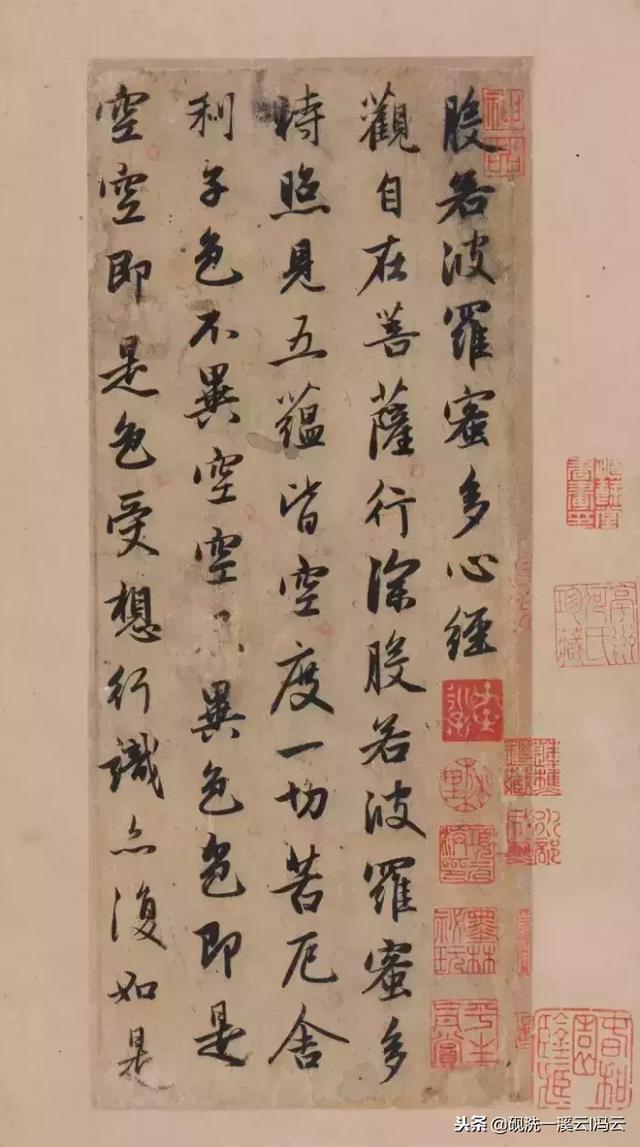 般若波羅蜜多心經
觀自在菩薩行深般若波羅蜜多
時照見五蘊皆空度一切苦厄舍
利子色不異空空不異色色即是
空空即是色受想行識亦復如是
墨林祕玩
平生真賞
头条 @砚洗一溪云I冯云